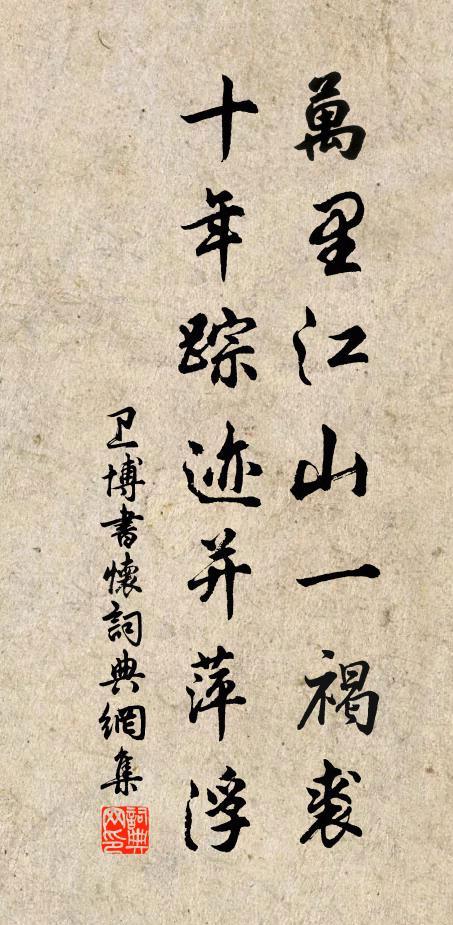 萬里江山一褐裘
十年踪迹并萍浮
卫博書懷詞典網集
詞典網印